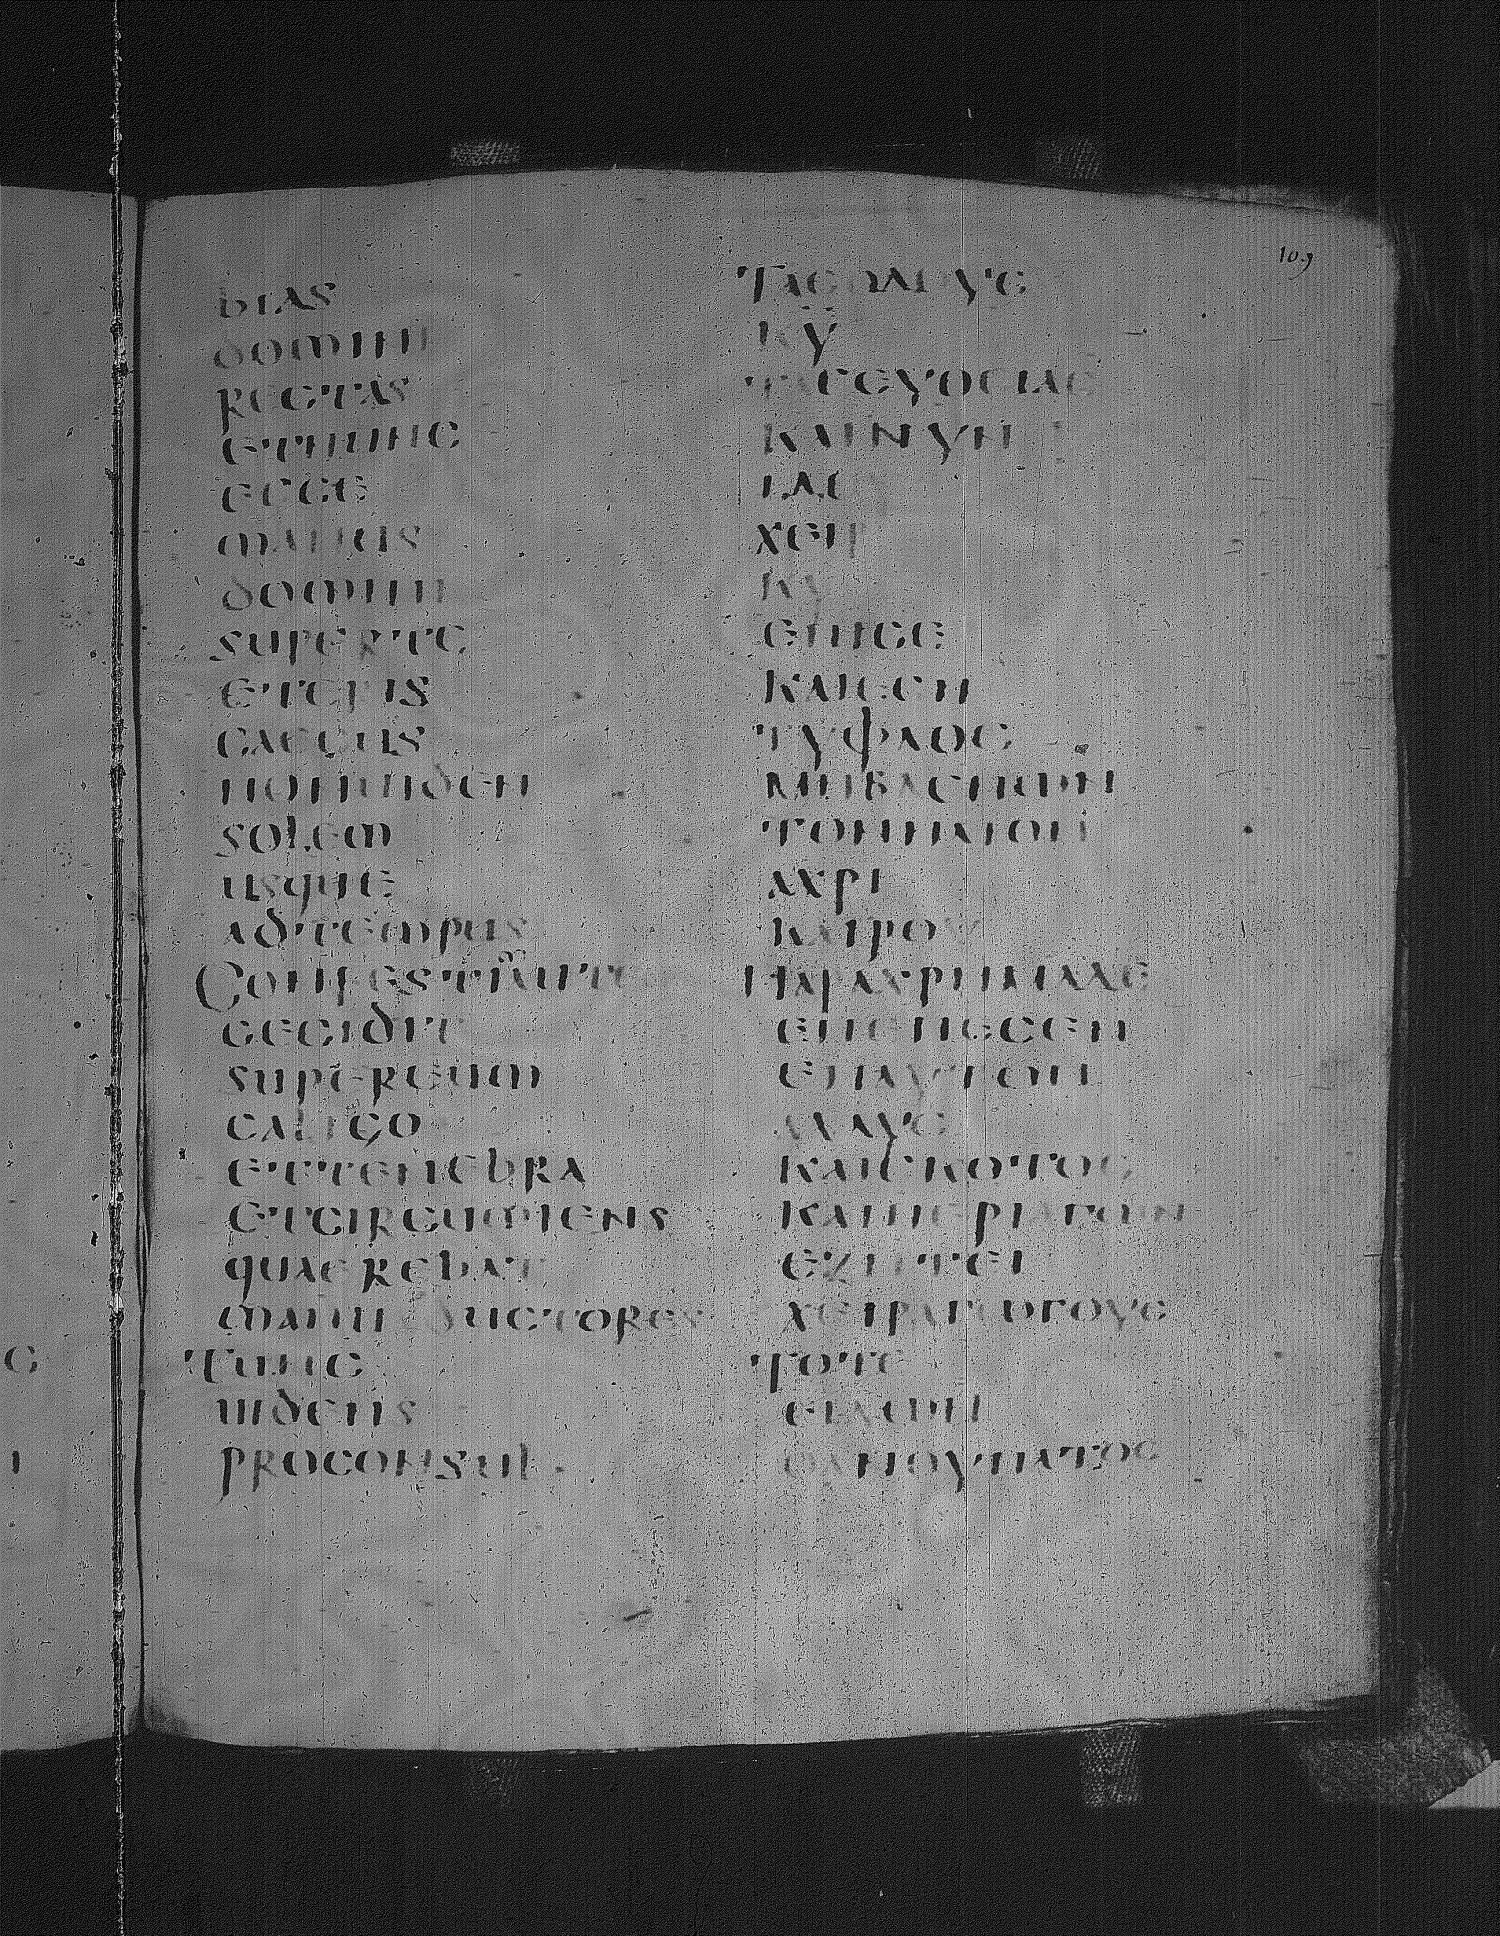 109
bias
domini
rectas
etnunc
ecce
manus
domini
superte
eteris
caecus
nonuiden
solem
usque
adtempus
Confestimaute
cecidit
supereum
caligo
ettenebra
etcircumiens
quaerebat
manuductores
Tunc
uidens
proconsul
Ταςοδους
κυ
ταςευθειας
καινυν
ιδου
χειρ
κυ
επισε
καιεση
τυφλος
μηβλεπων
τονηλιον
αχρι
καιρου
Παραχρημαδε
επεπεσεν
επαυτον
αχλυς
καισκοτος
καιπεριαγων
εζητει
χειραγωγους
Τοτε
ειδων
οανθυπατος